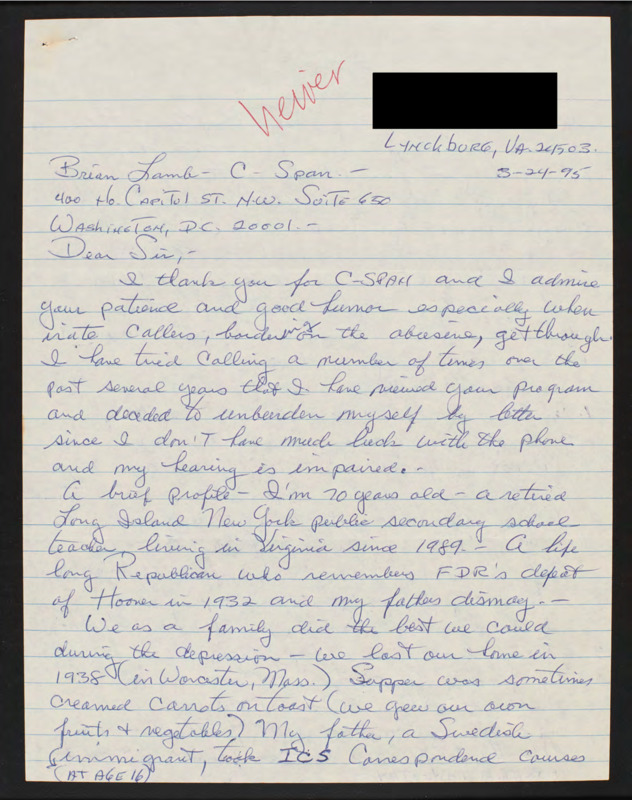 Lynchburg, VA. 24503.
Brian Lamb - C-Span. - 5-24-95
400 No. Capitol St. N.W. Suite 650
Washington, D.C. 20001. -
Dear Sir, -
I thank you for C-SPAN and I admire
your patience and good humor especially when
irate callers, bordering on the abusive, get through.
I have tried calling a number of times over the
past several years that I have viewed your program
and decided to unburden myself by letter
since I don't have much luck with the phone
and my hearing is impaired. -
A brief profile - I'm 70 years old - a retired
Long Island New York public secondary school
teacher, living in Virginia since 1989. - A life
long Republican who remembers FDR's defeat
of Hoover in 1932 and my fathers dismay. -
We as a family did the best we could
during the depression - we lost our home in
1938 (in Worcester, Mass.) Supper was sometimes
creamed carrots on toast (we grew our own
fruits & vegetables) My father, a Swedish
immigrant, took ICS Correspondence courses
(AT AGE 16)